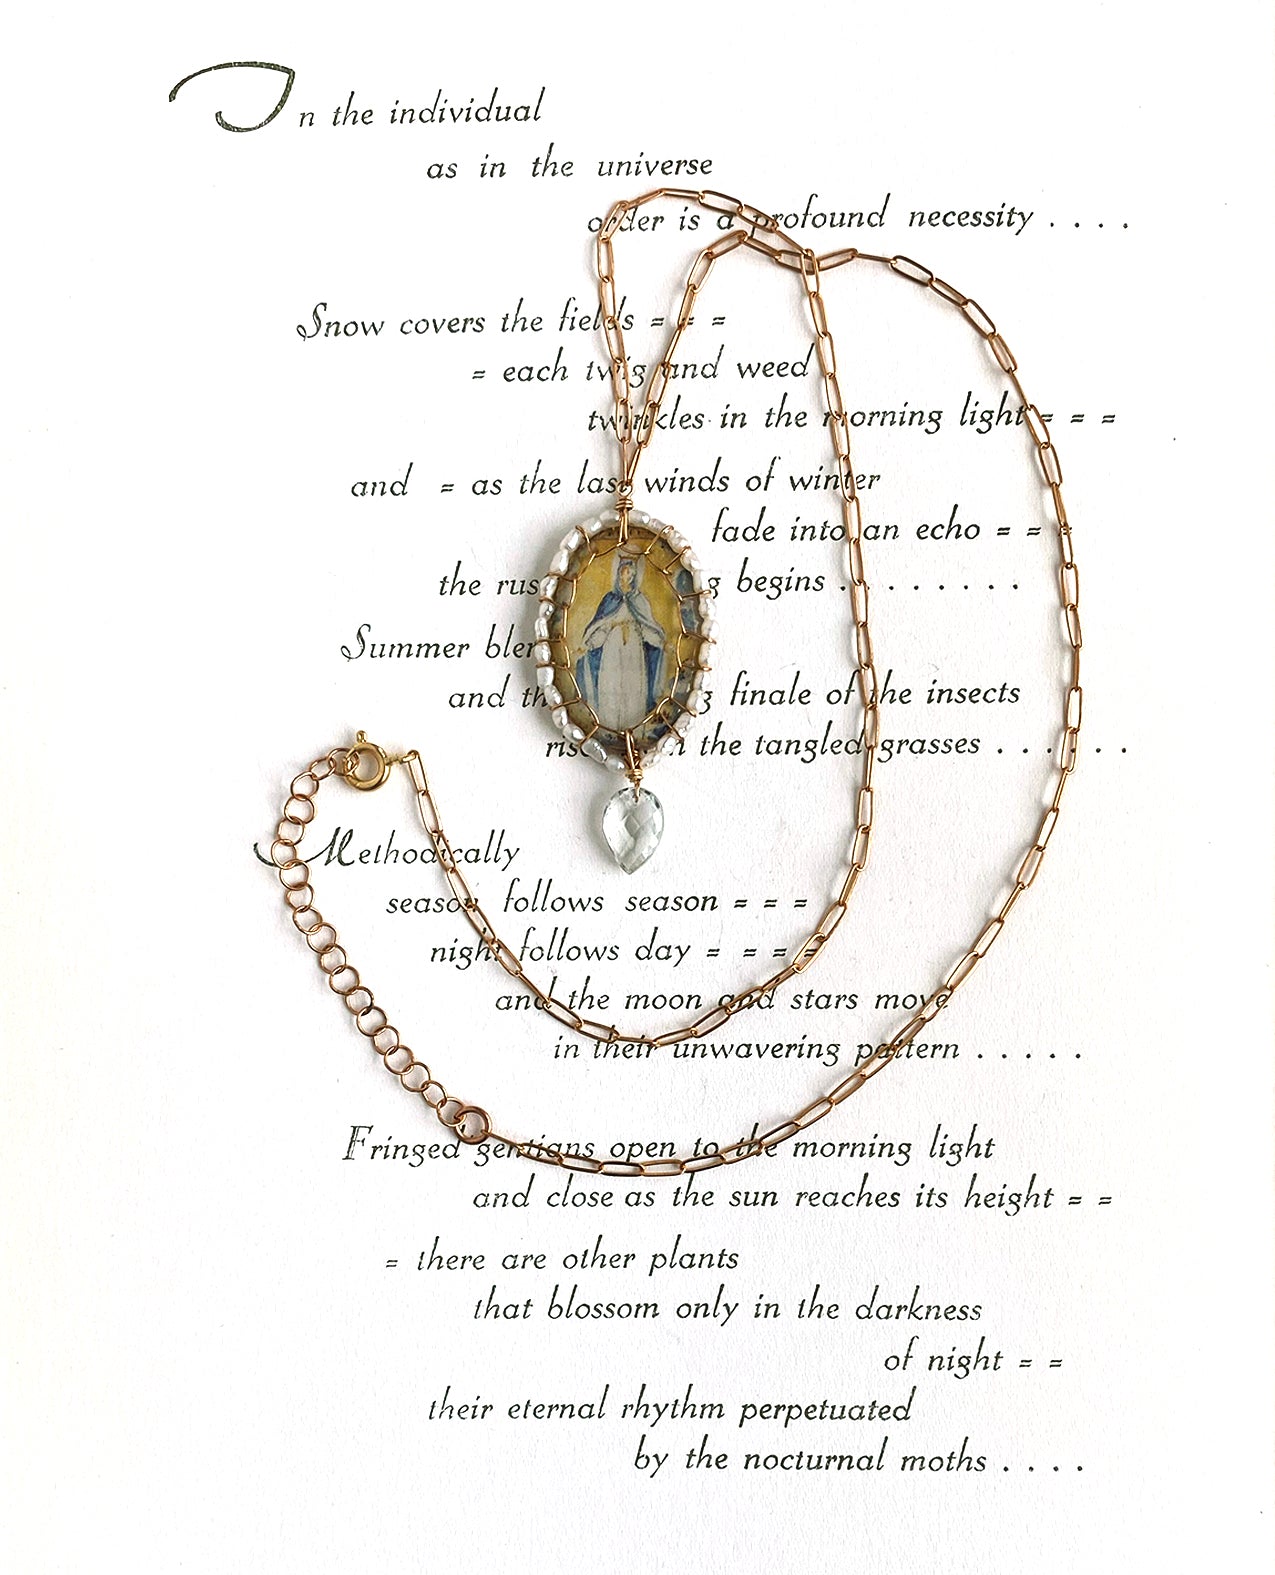 In the individual
as in the universe
order is a profound necessity . . . .
Snow covers the fields = = =
= each twig and weed
twinkles in the morning light = = =
and = as the last winds of winter
fade into an echo = = =
the begins . . . . . . . .
Summer
and finale of the insects
the tangled grasses . . . . . .
Methodically
season follows season = = =
night follows day = = = =
and the moon and stars move
in their unwavering pattern . . . . .
Fringed gentians open to the morning light
and close as the sun reaches its height = =
= there are other plants
that blossom only in the darkness
of night = =
their eternal rhythm perpetuated
by the nocturnal moths . . . .